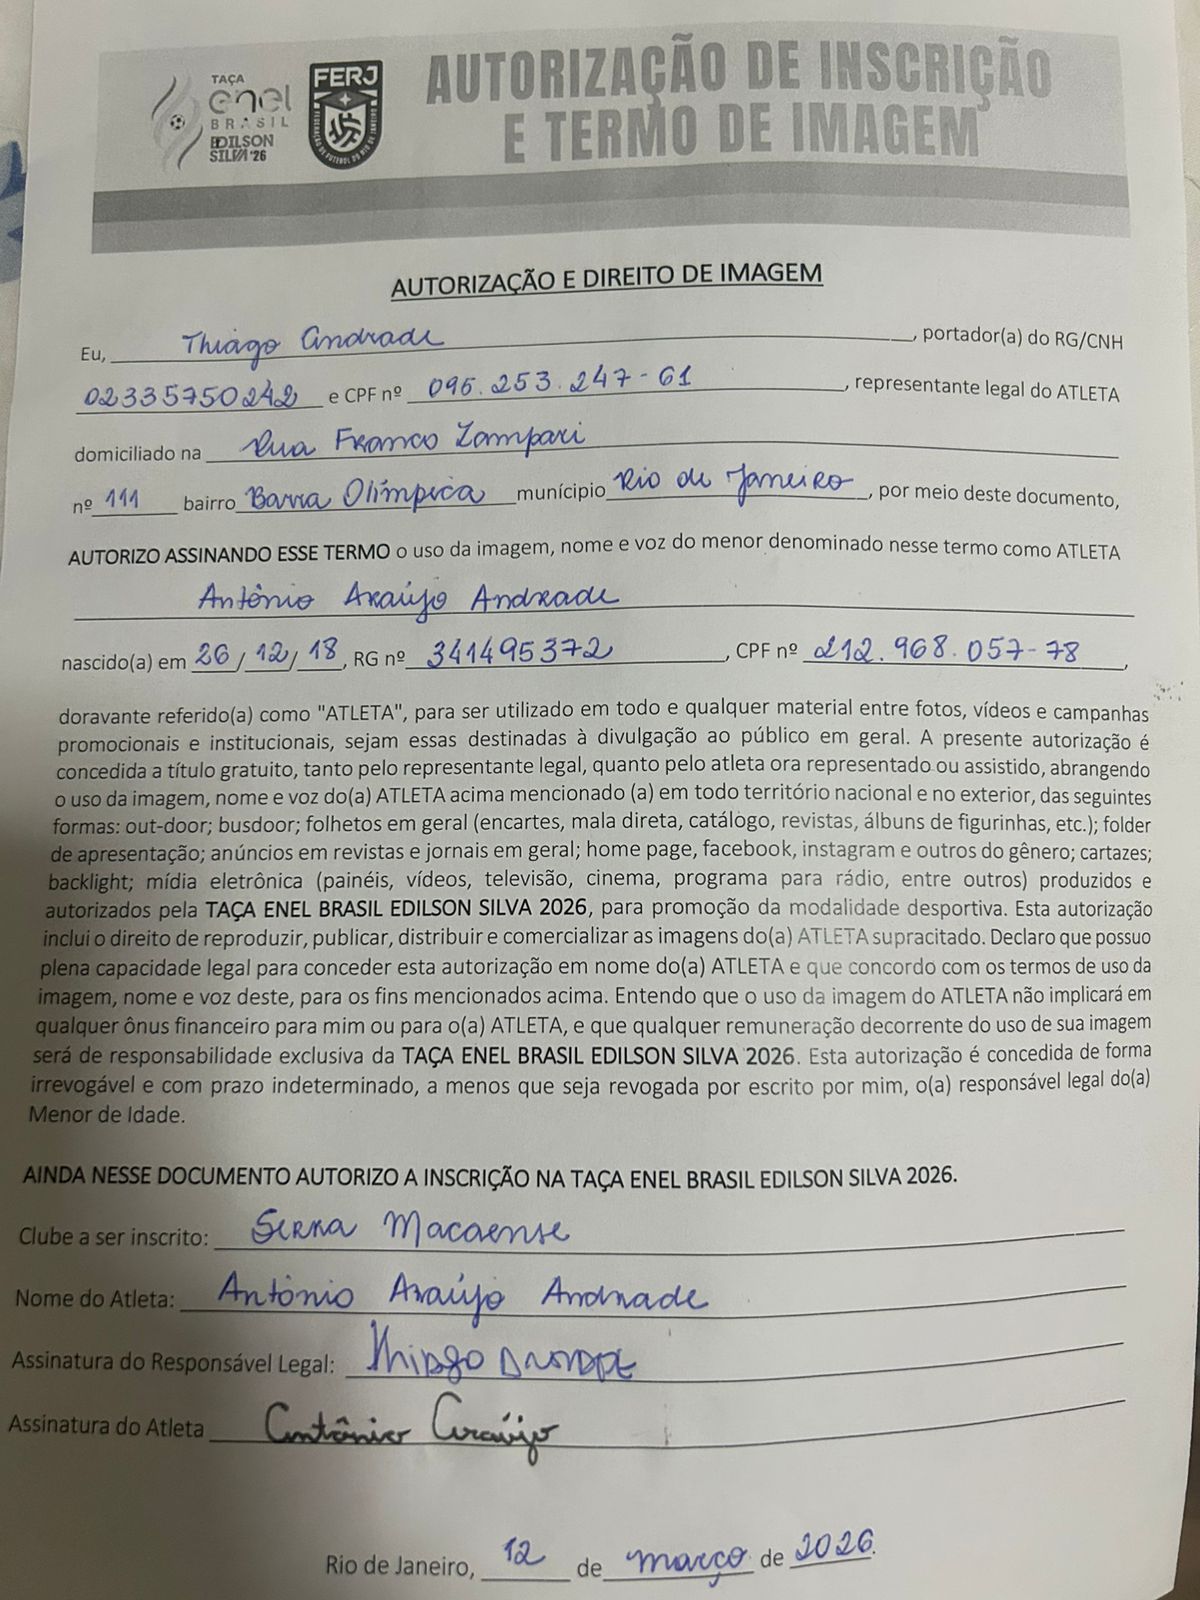 TAÇA
enel
BRASIL
EDILSON
SILVA '26
FERJ
FEDERAÇÃO DE FUTEBOL DO RIO DE JANEIRO
AUTORIZAÇÃO DE INSCRIÇÃO
E TERMO DE IMAGEM
AUTORIZAÇÃO E DIREITO DE IMAGEM
Eu, Thiago Andrade, portador(a) do RG/CNH
02335750242 e CPF nº 095.253.247-61, representante legal do ATLETA
domiciliado na Rua Franco Zampari
nº 111 bairro Barra Olímpica munícipio Rio de Janeiro, por meio deste documento,
AUTORIZO ASSINANDO ESSE TERMO o uso da imagem, nome e voz do menor denominado nesse termo como ATLETA
Antônio Araújo Andrade
nascido(a) em 26/12/18, RG nº 341495372, CPF nº 212.968.057-78,
doravante referido(a) como "ATLETA", para ser utilizado em todo e qualquer material entre fotos, vídeos e campanhas
promocionais e institucionais, sejam essas destinadas à divulgação ao público em geral. A presente autorização é
concedida a título gratuito, tanto pelo representante legal, quanto pelo atleta ora representado ou assistido, abrangendo
o uso da imagem, nome e voz do(a) ATLETA acima mencionado (a) em todo território nacional e no exterior, das seguintes
formas: out-door; busdoor; folhetos em geral (encartes, mala direta, catálogo, revistas, álbuns de figurinhas, etc.); folder
de apresentação; anúncios em revistas e jornais em geral; home page, facebook, instagram e outros do gênero; cartazes;
backlight; mídia eletrônica (painéis, vídeos, televisão, cinema, programa para rádio, entre outros) produzidos e
autorizados pela TAÇA ENEL BRASIL EDILSON SILVA 2026, para promoção da modalidade desportiva. Esta autorização
inclui o direito de reproduzir, publicar, distribuir e comercializar as imagens do(a) ATLETA supracitado. Declaro que possuo
plena capacidade legal para conceder esta autorização em nome do(a) ATLETA e que concordo com os termos de uso da
imagem, nome e voz deste, para os fins mencionados acima. Entendo que o uso da imagem do ATLETA não implicará em
qualquer ônus financeiro para mim ou para o(a) ATLETA, e que qualquer remuneração decorrente do uso de sua imagem
será de responsabilidade exclusiva da TAÇA ENEL BRASIL EDILSON SILVA 2026. Esta autorização é concedida de forma
irrevogável e com prazo indeterminado, a menos que seja revogada por escrito por mim, o(a) responsável legal do(a)
Menor de Idade.
AINDA NESSE DOCUMENTO AUTORIZO A INSCRIÇÃO NA TAÇA ENEL BRASIL EDILSON SILVA 2026.
Clube a ser inscrito: Serra Macaense
Nome do Atleta: Antônio Araújo Andrade
Assinatura do Responsável Legal: Thiago Andrade
Assinatura do Atleta Antônio Araújo
Rio de Janeiro, 12 de março de 2026.